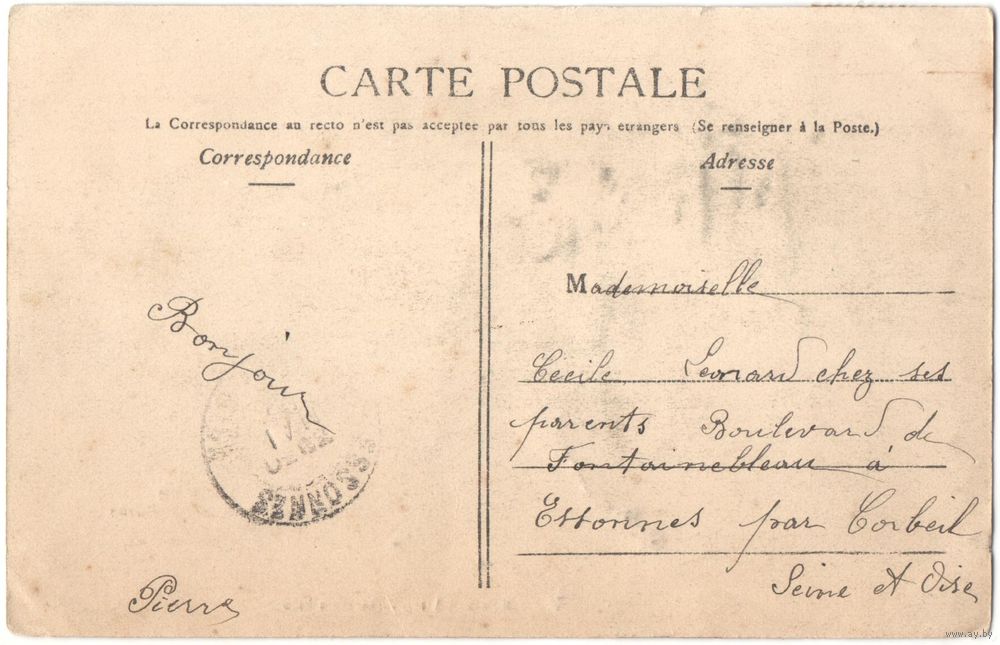 CARTE POSTALE
La Correspondance au recto n'est pas acceptee par tous les pays etrangers (Se renseigner à la Poste.)
Correspondance
Adresse
Bonjour
Pierre
ESSONNES
Mademoiselle
Cecile Leonard chez ses
parents Boulevard de
Fontainebleau à
Essonnes par Corbeil
Seine et Oise
www.ay.by